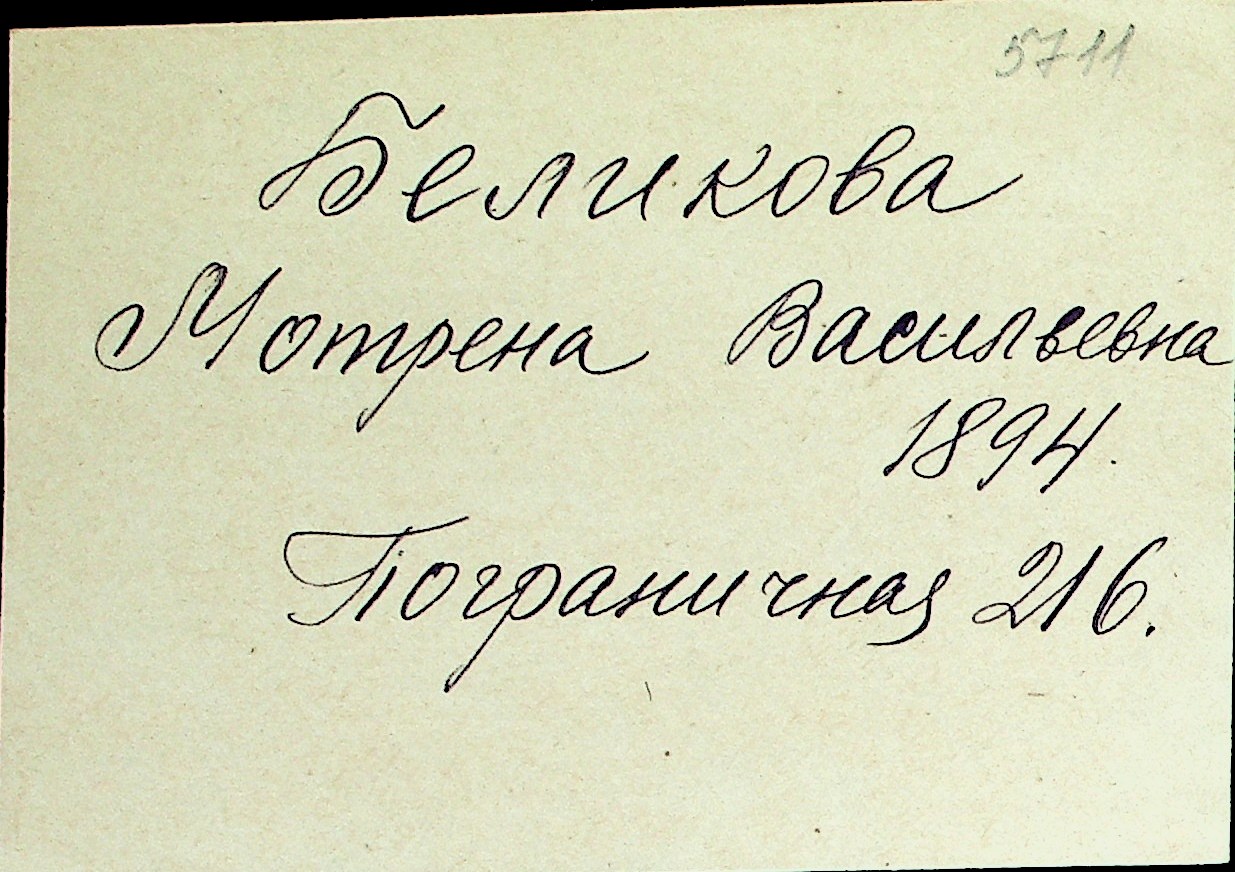 5711
Беликова
Мотрена Васильевна
1894.
Пограничная 216.